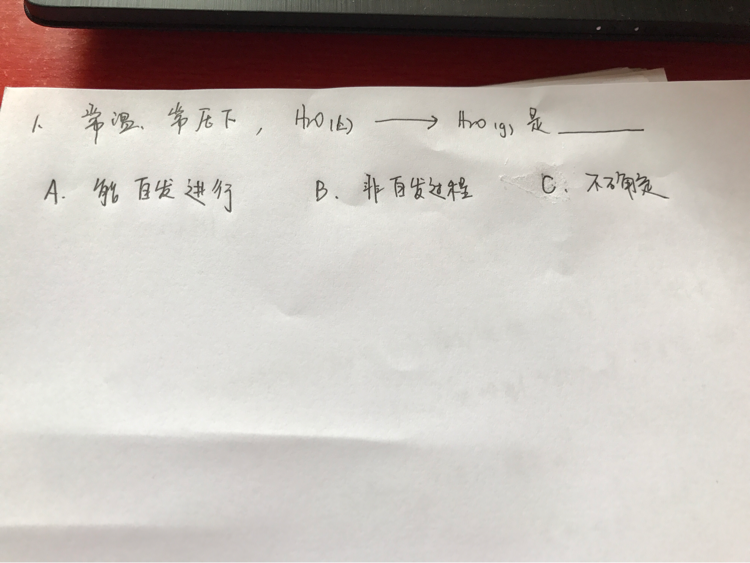 1、常温、常压下，H2O(l) ⟶ H2O(g) 是 ______
A. 能自发进行 B. 非自发过程 C. 不确定